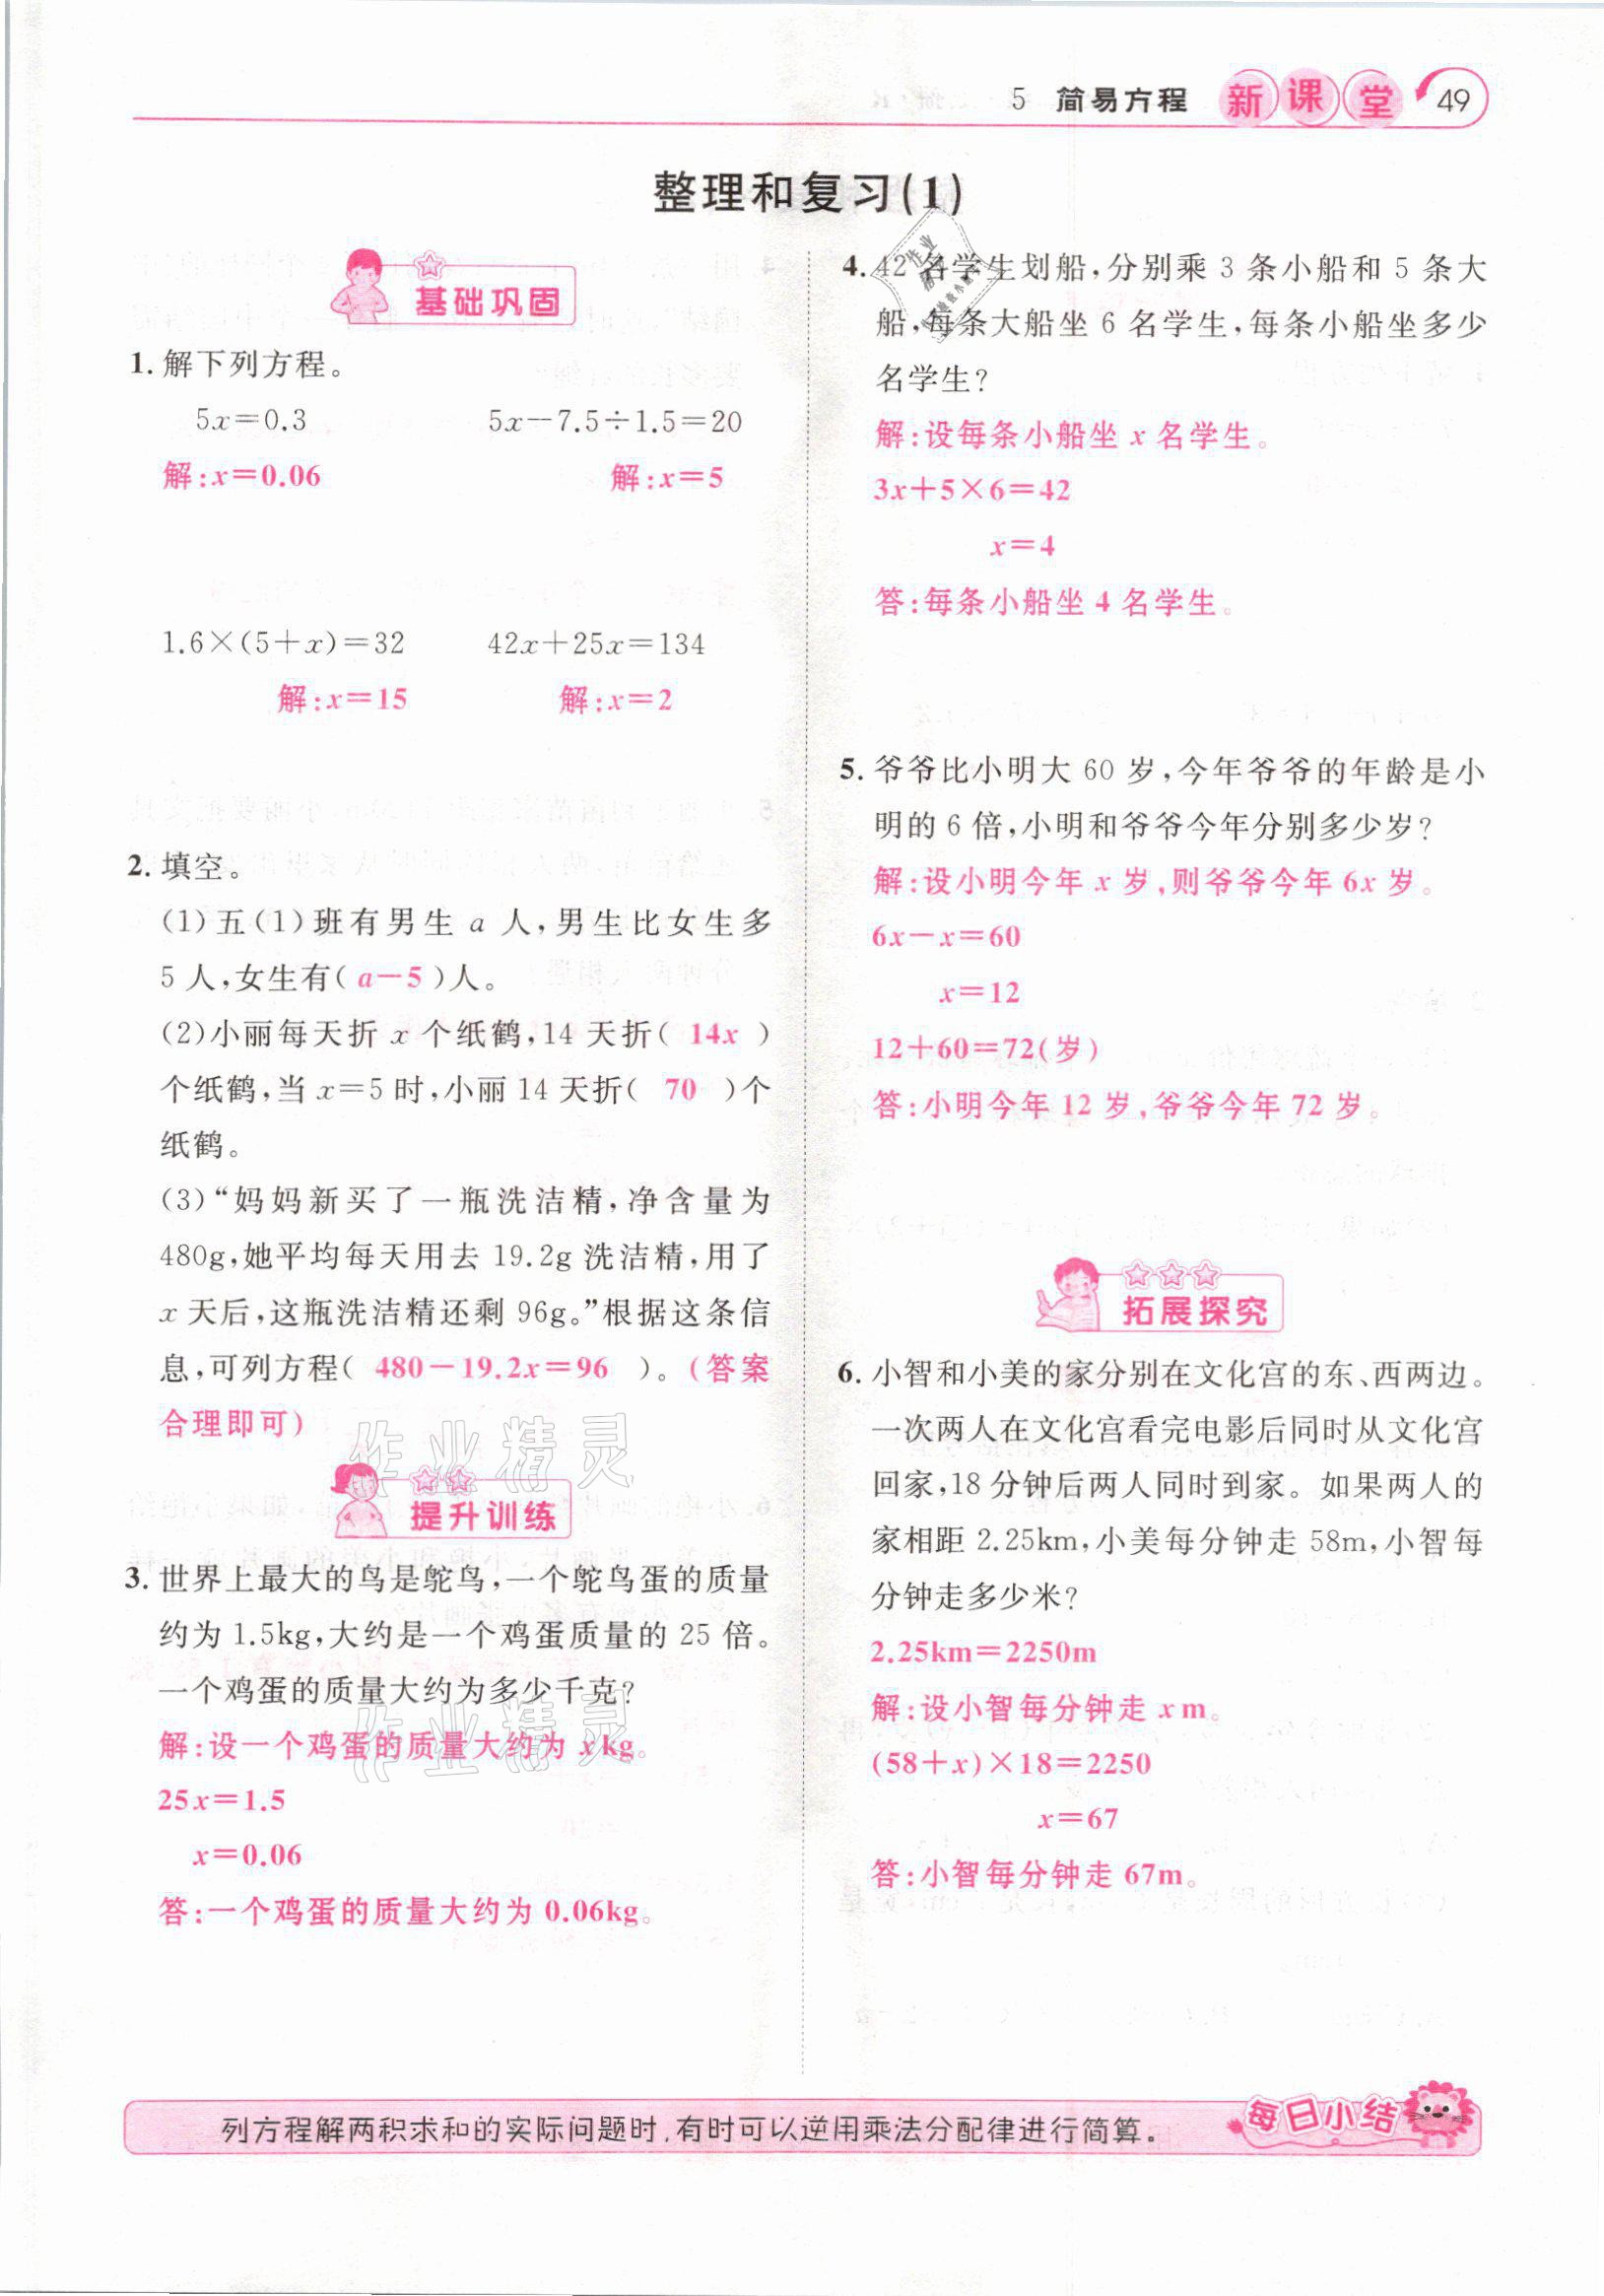 5 简易方程 新课堂 49
整理和复习(1)
基础巩固
1. 解下列方程。
5x=0.3 5x-7.5÷1.5=20
解:x=0.06 解:x=5
1.6×(5+x)=32 42x+25x=134
解:x=15 解:x=2
2. 填空。
(1)五(1)班有男生 a 人,男生比女生多
5人,女生有( a-5 )人。
(2)小丽每天折 x 个纸鹤,14 天折( 14x )
个纸鹤,当 x=5 时,小丽 14 天折( 70 )个
纸鹤。
(3)“妈妈新买了一瓶洗洁精,净含量为
480g,她平均每天用去 19.2g 洗洁精,用了
x 天后,这瓶洗洁精还剩 96g。”根据这条信
息,可列方程( 480-19.2x=96 )。(答案
合理即可)
作业精灵
提升训练
3. 世界上最大的鸟是鸵鸟,一个鸵鸟蛋的质量
约为 1.5kg,大约是一个鸡蛋质量的 25 倍。
一个鸡蛋的质量大约为多少千克?
作业精灵
解:设一个鸡蛋的质量大约为 x kg。
25x=1.5
x=0.06
答:一个鸡蛋的质量大约为 0.06kg。
4. 42 名学生划船,分别乘 3 条小船和 5 条大
船,每条大船坐 6 名学生,每条小船坐多少
名学生?
解:设每条小船坐 x 名学生。
3x+5×6=42
x=4
答:每条小船坐 4 名学生。
5. 爷爷比小明大 60 岁,今年爷爷的年龄是小
明的 6 倍,小明和爷爷今年分别多少岁?
解:设小明今年 x 岁,则爷爷今年 6x 岁。
6x-x=60
x=12
12+60=72(岁)
答:小明今年 12 岁,爷爷今年 72 岁。
拓展探究
6. 小智和小美的家分别在文化宫的东、西两边。
一次两人在文化宫看完电影后同时从文化宫
回家,18 分钟后两人同时到家。如果两人的
家相距 2.25km,小美每分钟走 58m,小智每
分钟走多少米?
2.25km=2250m
解:设小智每分钟走 x m。
(58+x)×18=2250
x=67
答:小智每分钟走 67m。
列方程解两积求和的实际问题时,有时可以逆用乘法分配律进行简算。
每日小结